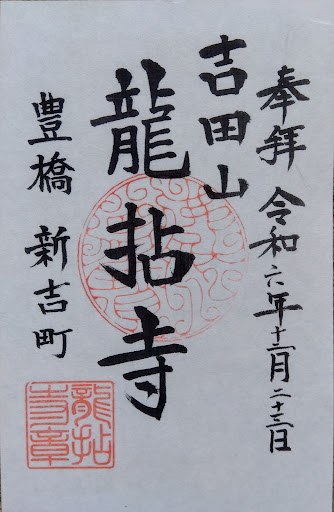 奉拜 令和六年十一月二十三日
吉田山
龍拈寺
豊橋 新吉町
龍拈
寺章